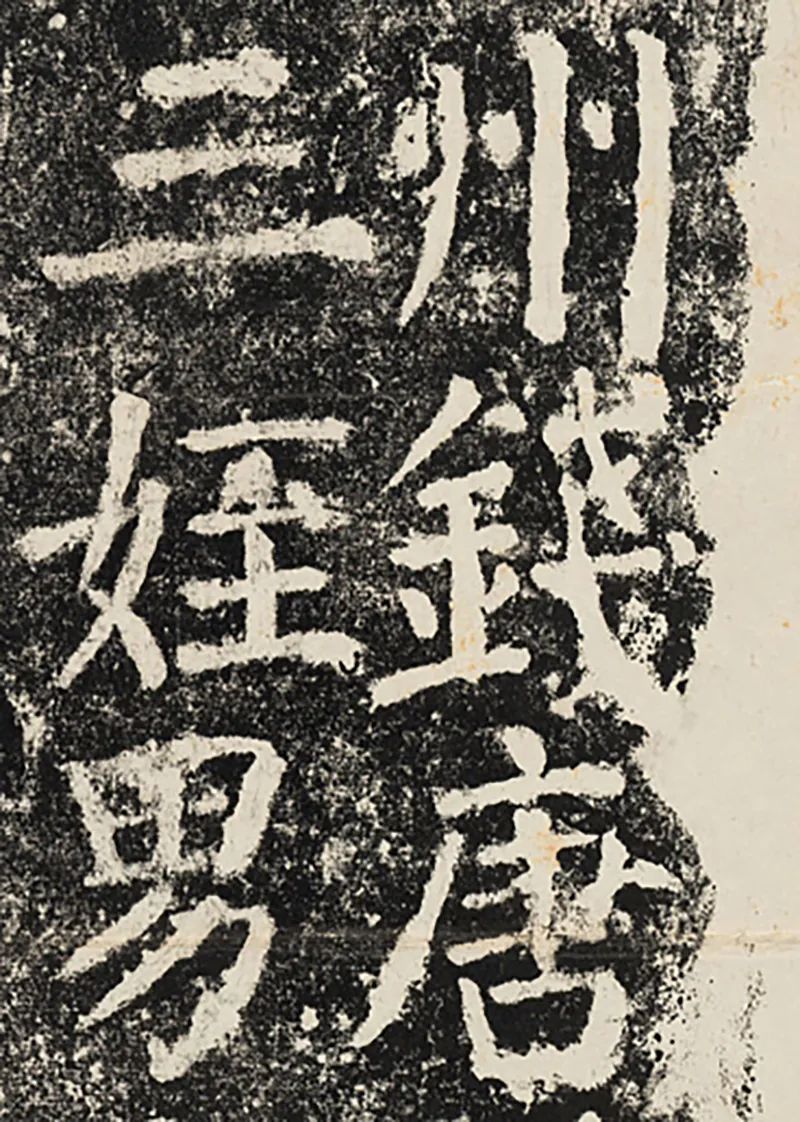 州錢唐
三姪男